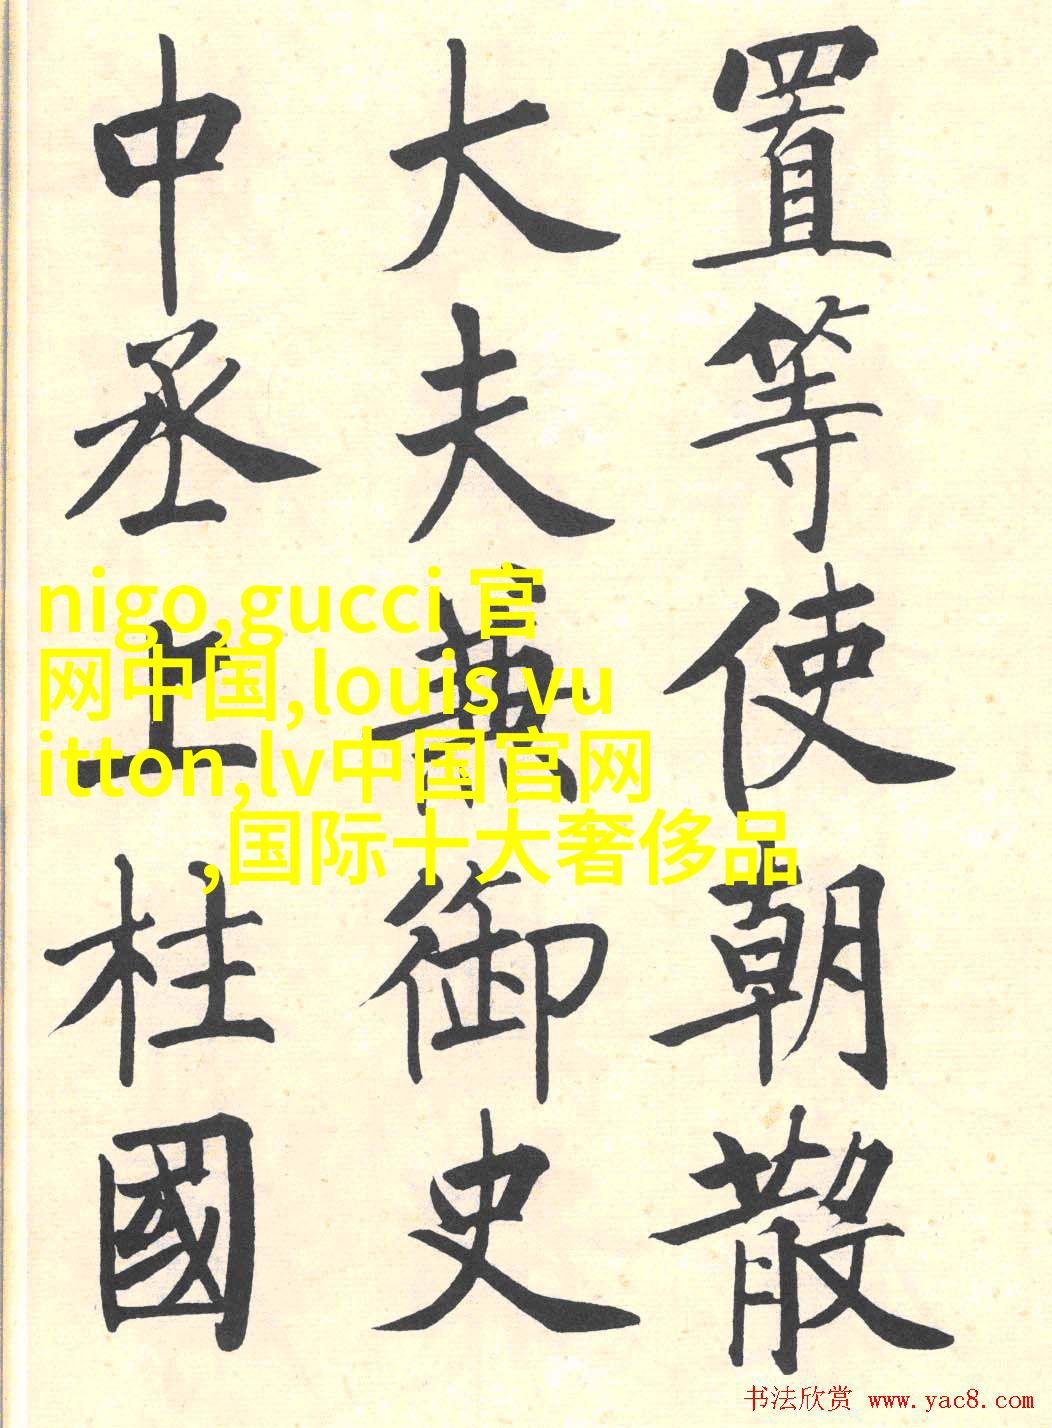 置等使朝散
大夫兼御史
中丞上柱國
nigo,gucci 官
网中国,louis vu
itton,lv中国官网
,国际十大奢侈品
书法欣赏 www.yac8.com